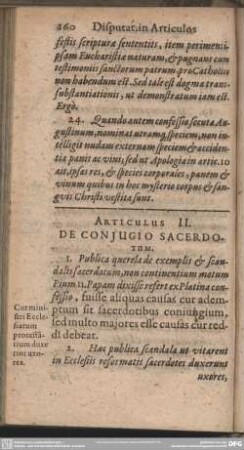 260 Disputat. in Articulos
festis scripturæ sententiis, item perimeni-
psam Eucharistiæ naturam, & pugnant cum
testimoniis sanctorum patrum pro Catholico
non habendum est. Sed tale est dogma trans-
substantiationis, ut demonstratum iam est.
Ergò.
24. Quando autem confessio secuta Au-
gustinum, nominat utramq; speciem, non in-
telligit nudam externam speciem & acciden-
tia panis ac vini; sed ut Apologia in artic. 10
ait, ipsas res, & species corporales, panem &
vinum quibus in hoc mysterio corpus & san-
guis Christi vestita sunt.
ARTICULUS II.
DE CONJUGIO SACERDO-
TUM.
1. Publica querela de exemplis & scan-
dalis sacerdotum, non continentium motum
Pium II. Papam dixisse refert ex Platina con-
fessio, fuisse aliquas causas cur adem-
ptum sit sacerdotibus coniugium,
sed multo majores esse causas cur red-
di debeat.
Cur mini-
stri Eccle-
siarum
protestã-
tium duxe
rint uxo-
res.
2. Hæc publica scandala ut vitarent
in Ecclesiis reformatis sacerdotes duxerunt
uxores,